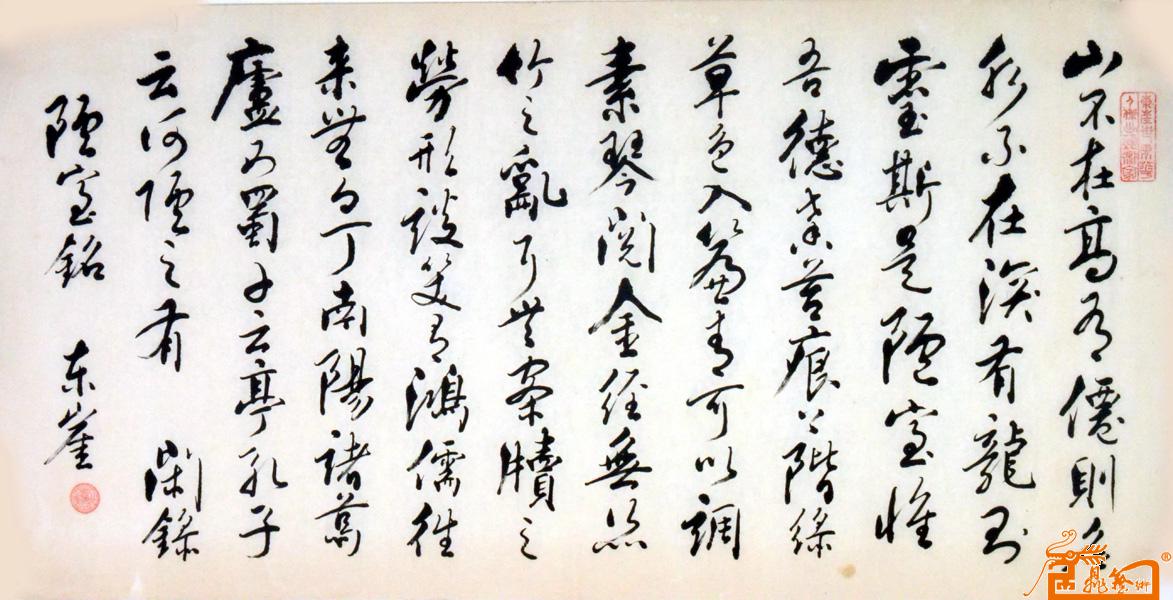 山不在高有僊則名
水不在深有龍則
靈斯是陋室惟
吾德馨苔痕上階綠
草色入簾青可以調
素琴閱金經無絲
竹之亂耳無案牘之
勞形談笑有鴻儒往
来無白丁南陽諸葛
廬西蜀子云亭孔子
云何陋之有 閑錄
陋室銘 东崖